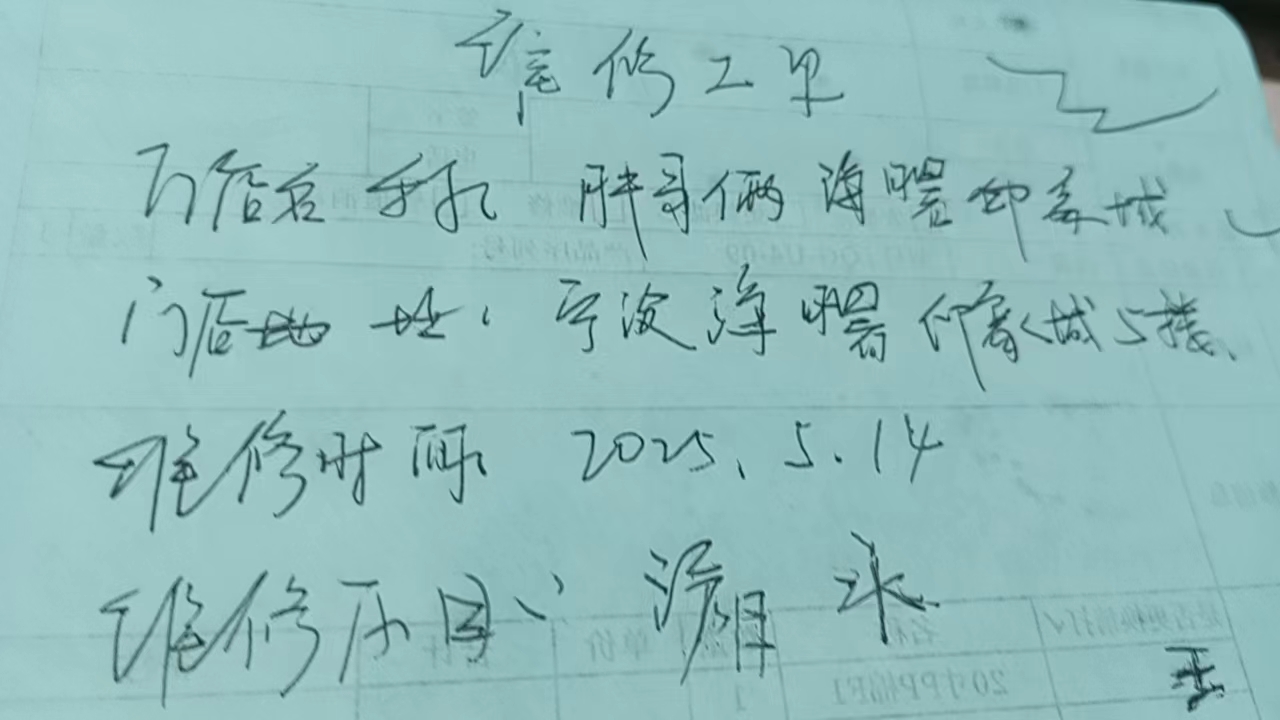 维修工单
门店名称: 胖哥俩海曙印象城
门店地址: 宁波海曙印象城5楼
维修时间: 2025.5.14
维修原因: 漏水